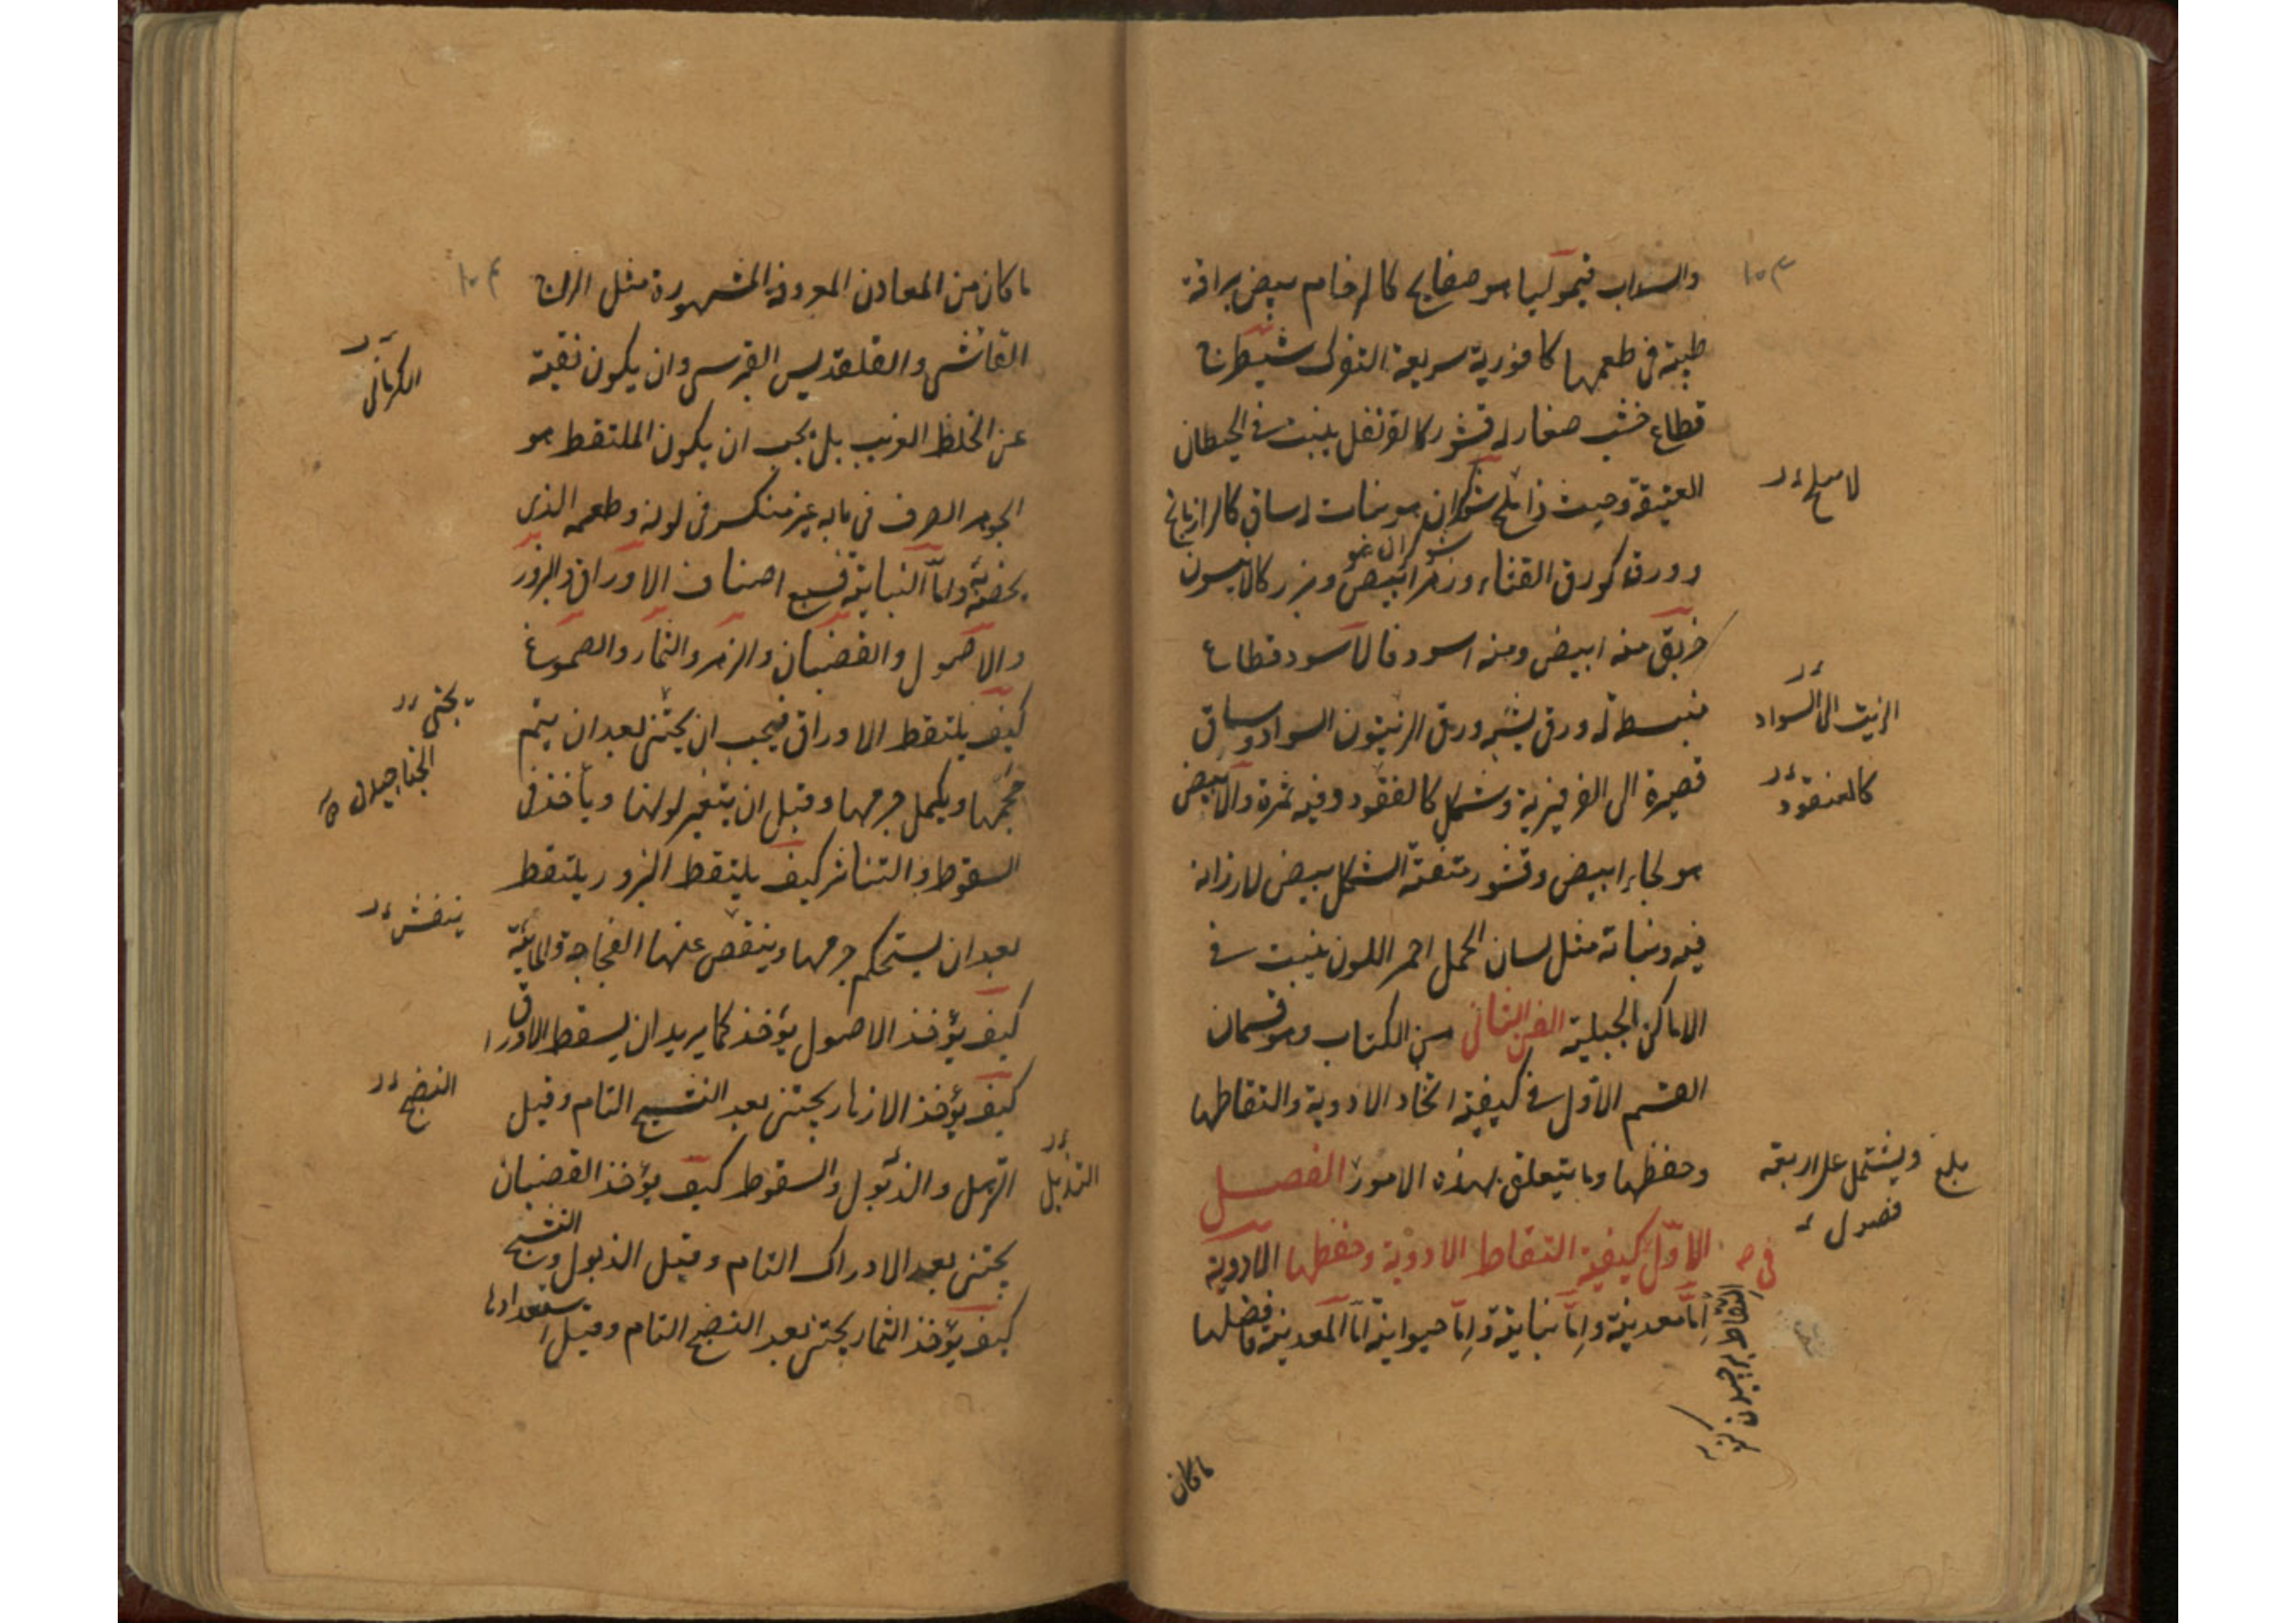 ١٠٣
والسداب قيموليا هو صفايح كالرخام بيض براقة
طيبة في طعمها كافورية سريعة التفرك شيطرج
قطاع خشب صغار له قشور كالقرنفل ينبت في الحيطان
العتيقة وحيث ذا ثلج شوكران هو نبات له ساق كالرازيانج
لا ثلج
شوكران هو
وورق كورق القثاء وزهر ابيض وبزر كالانيسون
خربق منه ابيض ومنه اسود فالاسود قطاع
منبسطة له ورق يشبه ورق الزيتون السواد وساق
الزيت الى السواد
قصيرة الى الفرفيرية وشكل كالفقود وفيه ثمرة والابيض
كالعنقود
هو لحاء ابيض وقشور متفتة الشكل بيض لا رزانة
فيه ونباته مثل لسان الحمل احمر اللون ينبت في
الاماكن الجبلية الفن الثاني من الكتاب وهو قسمان
القسم الاول في كيفية اتخاد الادوية والتقاطها
وحفظها وما يتعلق بهذه الامور الفصل
ويشتمل على اربعة
فصول
بلغ
الاول كيفية التقاط الادوية وحفظها الادوية
في
اما معدنية واما نباتية واما حيوانية اما المعدنية فافضلها
ما كان
١٠٤
ما كان من المعادن المعروفة المشهورة مثل الزاج
القائش والقلقديس القبرسي وان يكون نقية
الكرماني
عن الخلط الغريب بل يجب ان يكون الملتقط هو
الجوهر الصرف في بابه غير منكسر في لونه وطعمه الذي
يخصه واما النباتية فسبع اصناف الاوراق والبزور
والاصول والقضبان والزهر والثمار والصموغ
كيف يلتقط الاوراق فيجب ان يجتنى بعد ان يتم
يجتنى
حجمها ويكمل جرمها وقبل ان يتغير لونها ويأخذ في
السقوط والتناثر كيف يلتقط البزور يلتقط
بعد ان يستحكم جرمها وينقص عنها الفجاجة والمائية
ينفش
كيف يؤخذ الاصول يؤخذ كما يريد ان يسقط الاوراق
كيف يؤخذ الازهار يجتنى بعد التشنج التام وقبل
النضج
الترهل والذبول والسقوط كيف يؤخذ القضبان
التذبل
يجتنى بعد الادراك التام وقبل الذبول والتشنج
كيف يؤخذ الثمار يجتنى بعد النضج التام وقبل استعدادها